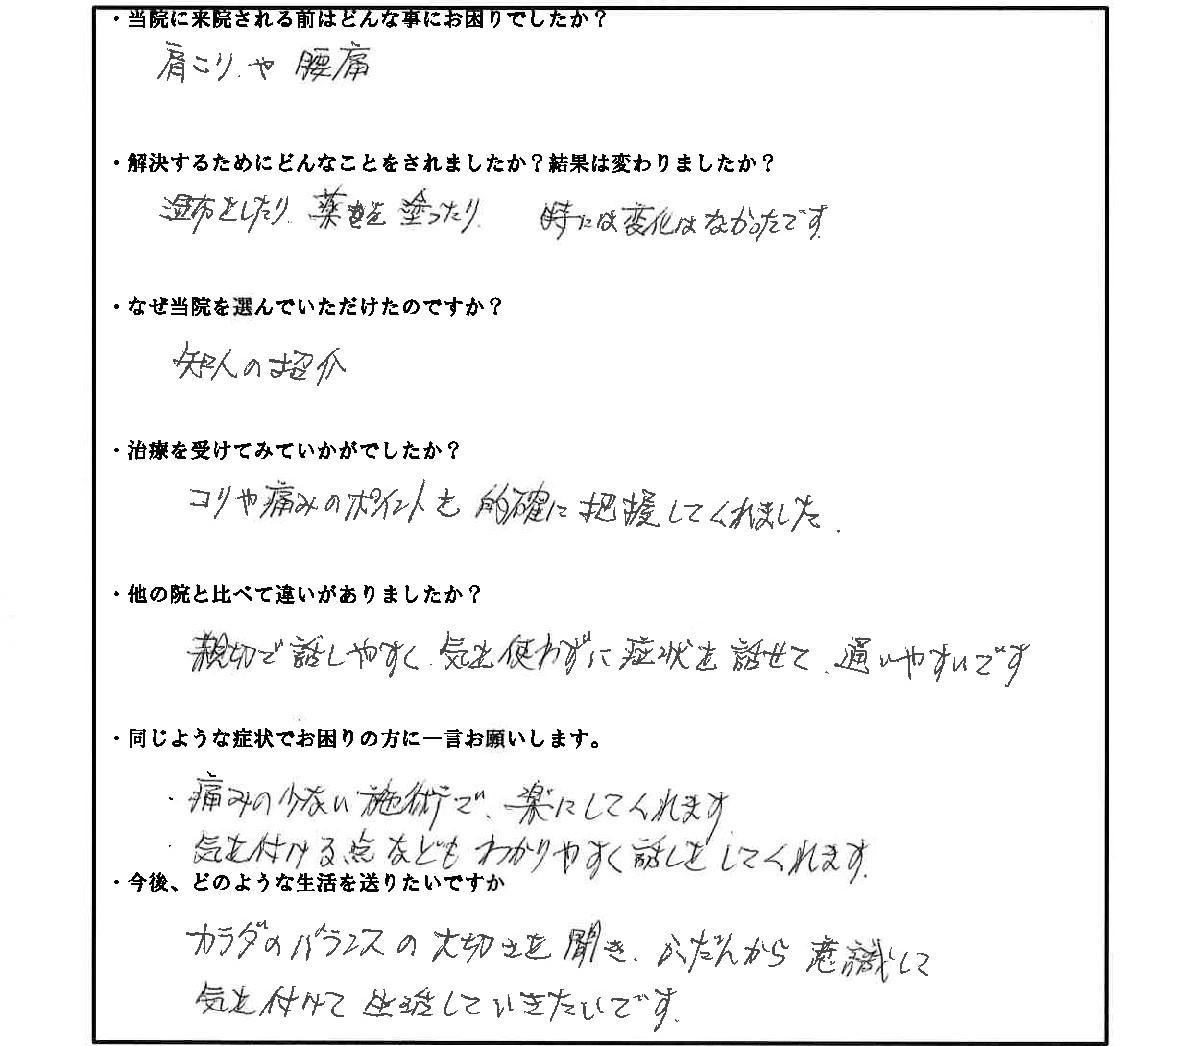 ・当院に来院される前はどんな事にお困りでしたか？
肩こり、や 腰痛
・解決するためにどんなことをされましたか？結果は変わりましたか？
湿布をしたり、薬を塗ったり、 時には変化はなかったです。
・なぜ当院を選んでいただけたのですか？
知人の紹介
・治療を受けてみていかがでしたか？
コリや痛みのポイントを 的確に把握してくれました。
・他の院と比べて違いがありましたか？
親切で話しやすく、気を使わずに症状を話せて、通いやすいです
・同じような症状でお困りの方に一言お願いします。
・痛みの少ない施術で、楽にしてくれます。
・気を付ける点などもわかりやすく話しをしてくれます。
・今後、どのような生活を送りたいですか
カラダのバランスの大切さを聞き、ふだんから意識して
気を付けて生活していきたいです。